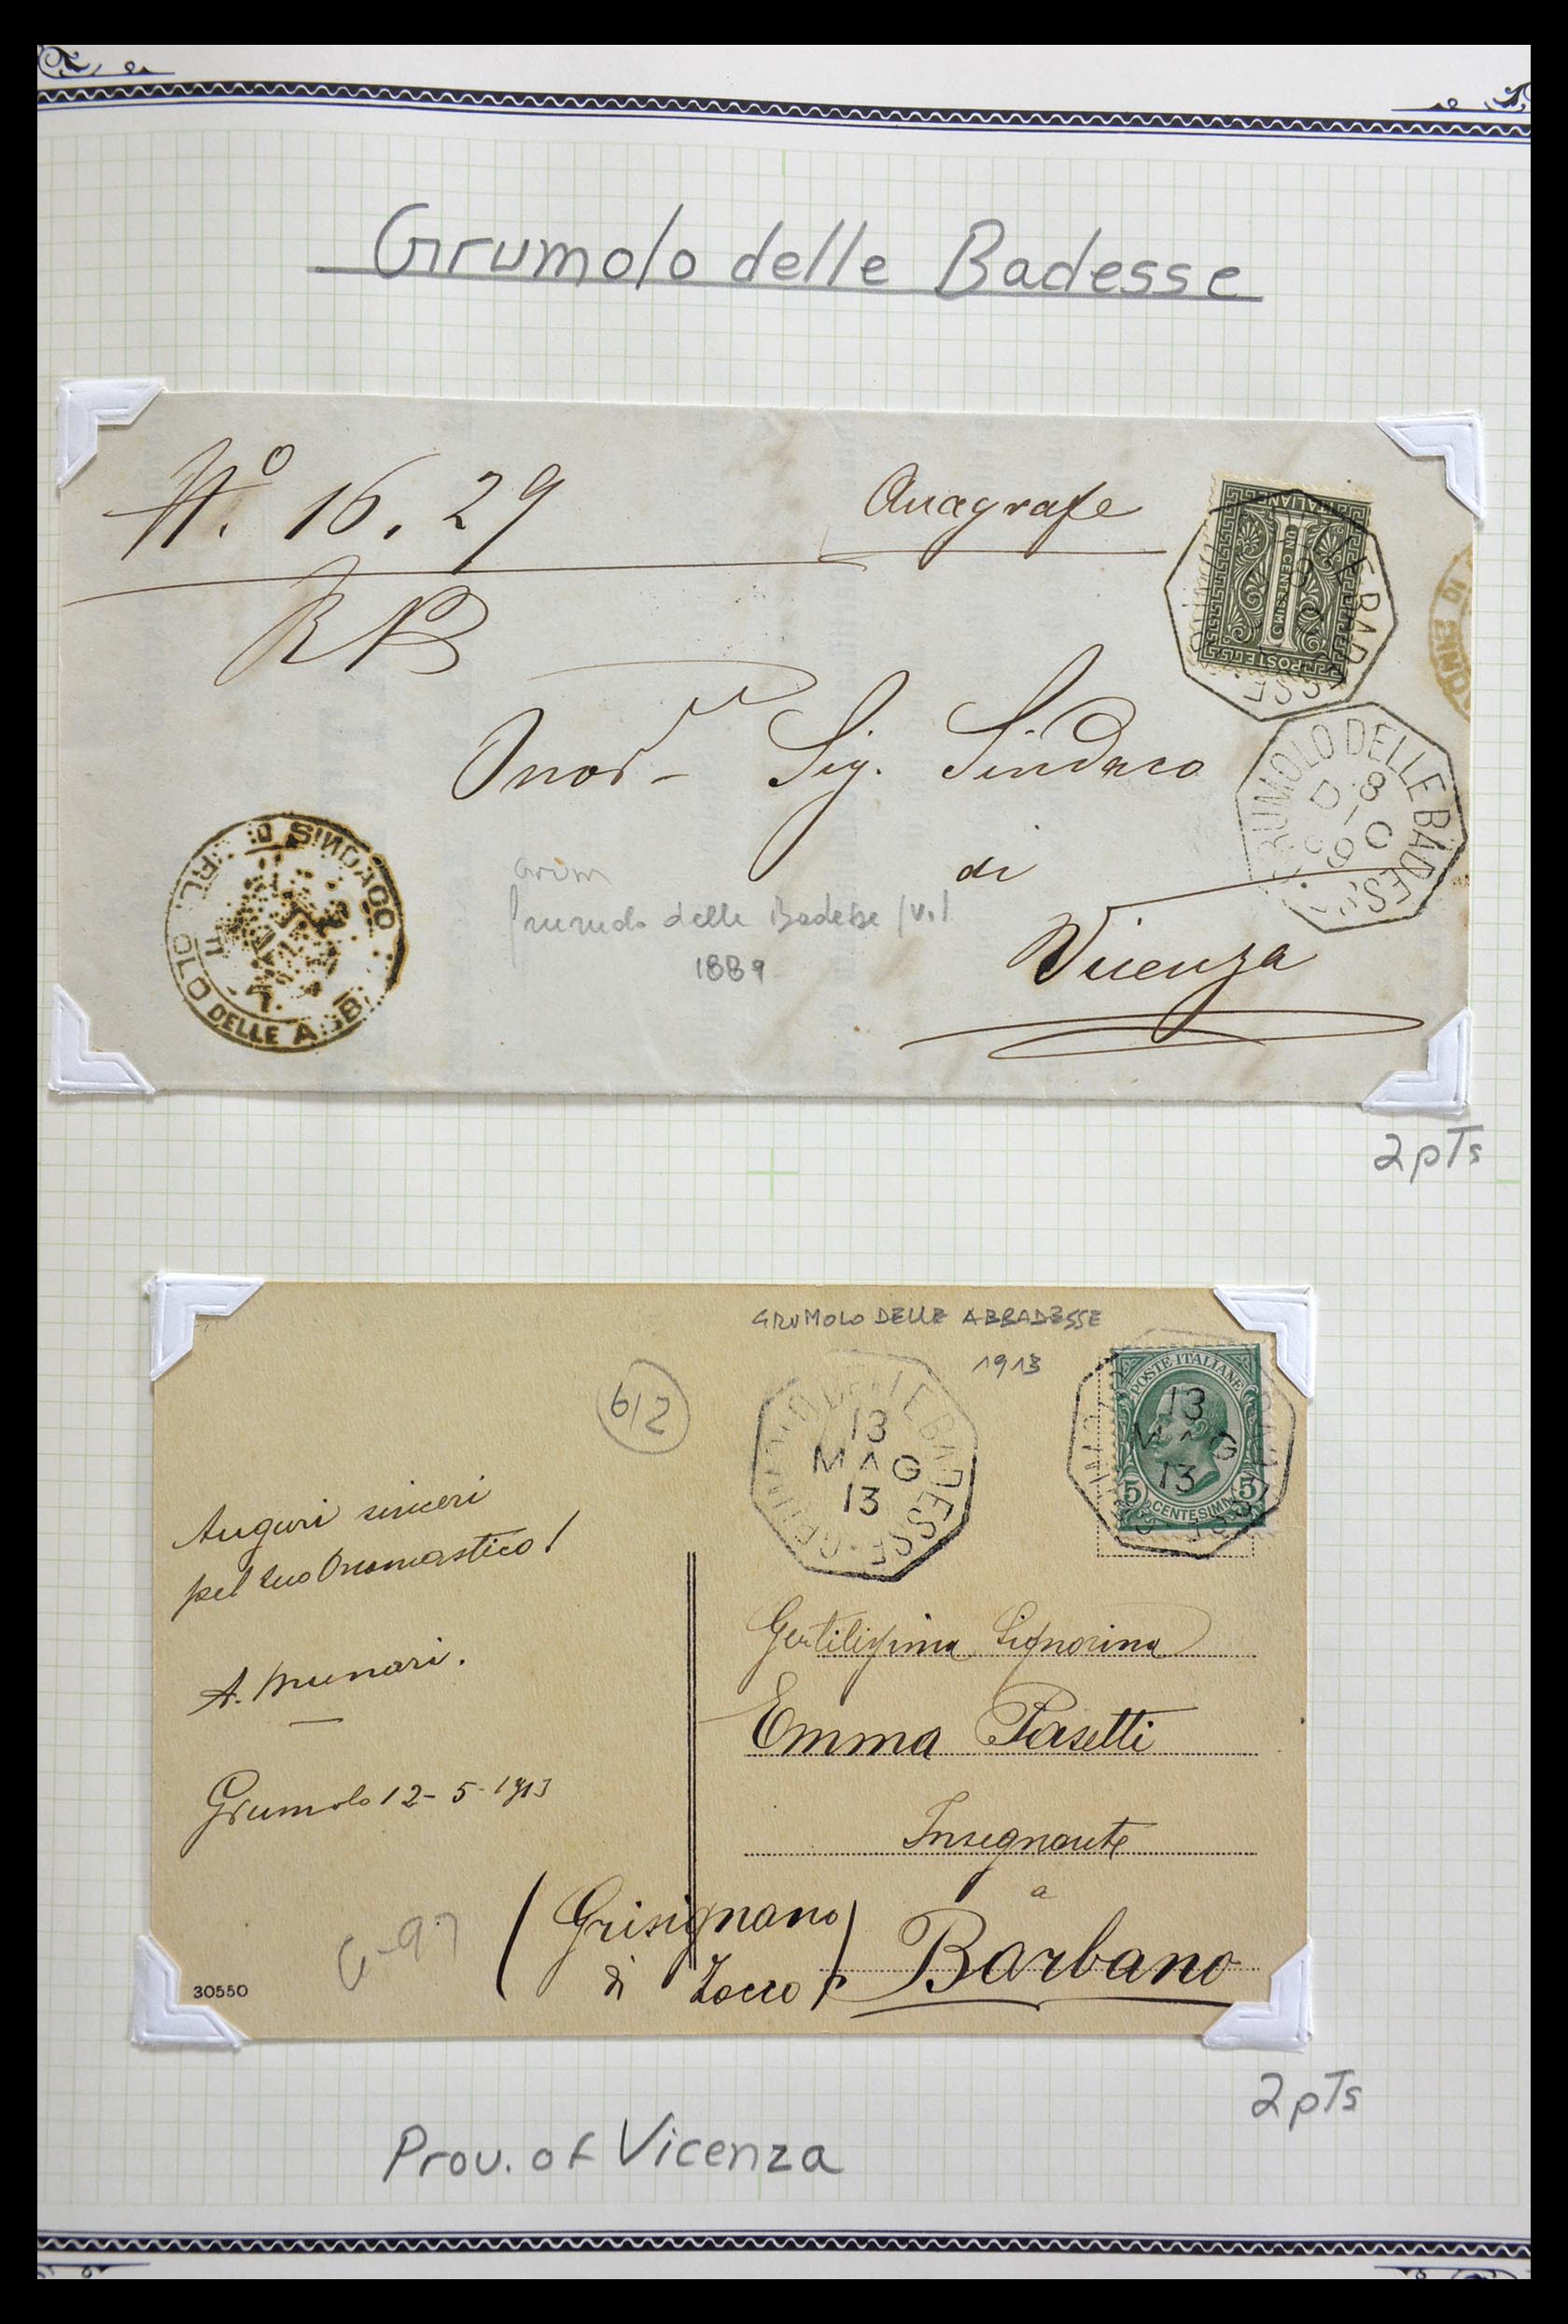 Grumolo delle Badesse
N.º 16. 29
Anagrafe
RNB
POSTE ITALIANE
UN CENTESIMO
1
Onor- Sig. Sindaco
di
Vicenza
GRUMOLO DELLE BADESSE
8
SINDACO
DELLE
Grum
delle Badesse (V.)
1889
2pTs
GRUMOLO DELLE ABBADESSE
1913
612
GRUMOLO DELLE BADESSE
13
MAG
13
POSTE ITALIANE
13
MAG
13
5 5
CENTESIMI
Auguri sinceri
pel suo Onomastico!
A. Munari.
Grumolo 12-5-1913
Gentilissima Signorina
Emma Pasetti
Insegnante
a
Barbano
(Grisignano
di Zocco)
30550
2pTs
Prov. of Vicenza